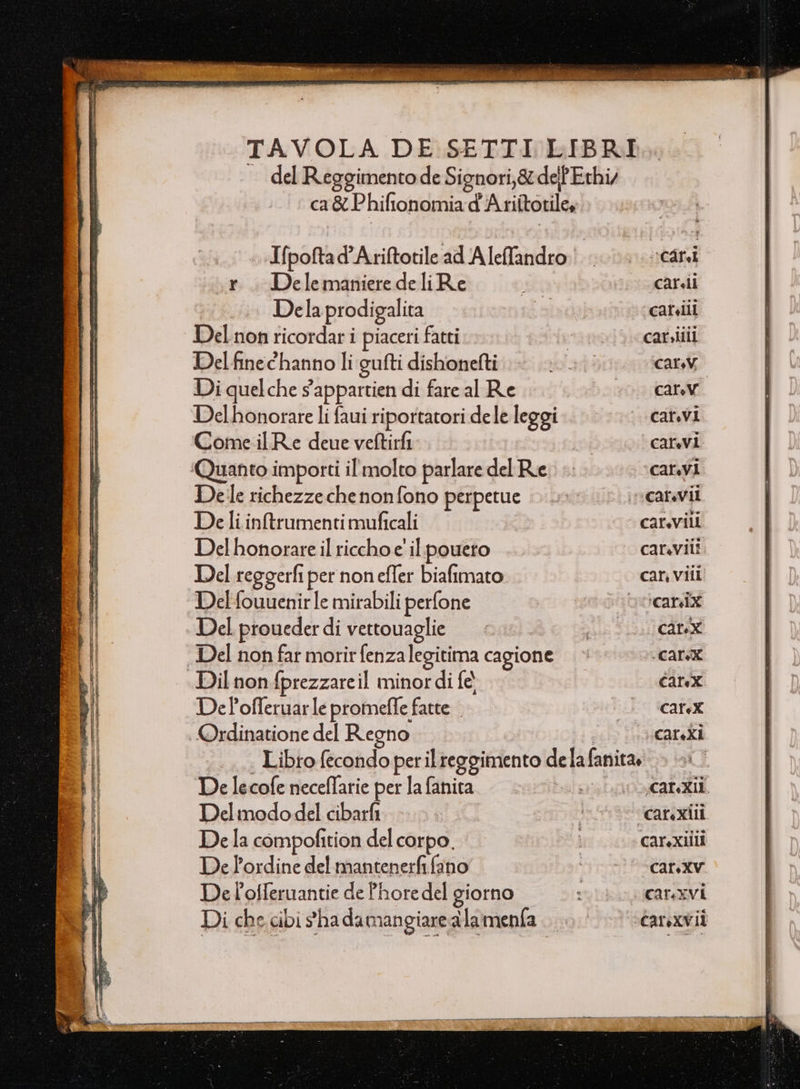 TAVOLA DE SETTI LIBRI
del Reggimento de Signori,& dell'Ethi/
ca & Phiſionomia d'Ariſtotile,
Iſpoſta d'Ariſtotile ad Aleſſandro car.i
r Dele maniere de li Re car.ii
Dela prodigalita car.iii
Del non ricordar i piaceri fatti car.iiii
Del fine c'hanno li guſti dishoneſti car.v
Di quel che s'appartien di fare al Re car.v
Del honorare li ſaui riportatori dele leggi car.vi
Come il Re deue veſtirſi car.vi
Quanto importi il molto parlare del Re car.vi
De le richezze che non ſono perpetue car.vii
De li inſtrumenti muſicali car.viii
Del honorare il riccho e' il pouero car.viii
Del reggerſi per non eſſer biaſimato car, viii
Del ſouuenir le mirabili perſone car.ix
Del proueder di vettouaglie car.x
Del non far morir ſenza legitima cagione car.x
Dil non ſprezzare il minor di ſe' car.x
De l'oſſeruar le promeſſe fatte car.x
Ordinatione del Regno car.xi
Libro ſecondo per il reggimento de la ſanita.
De le coſe neceſſarie per la ſanita car.xii
Del modo del cibarſi car.xiii
De la compoſition del corpo. car.xiiii
De l'ordine del mantenerſi ſano car.xv
De l'oſſeruantie de l'hore del giorno car.xvi
Di che cibi s'ha da mangiare a la menſa car.xvii